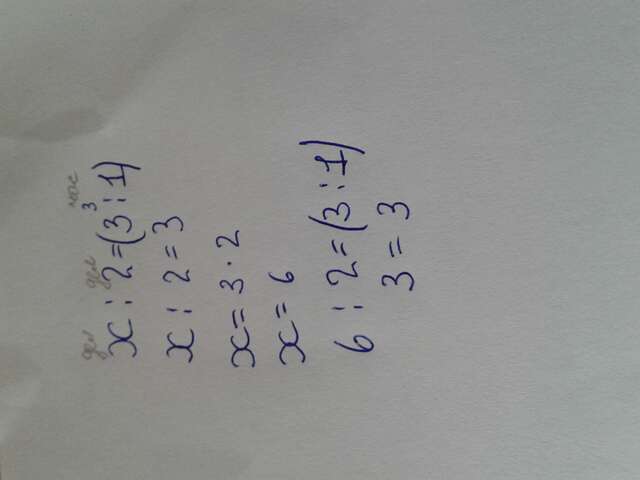 дел дел час
x : 2 = (3 : 1)
3
x : 2 = 3
x = 3 · 2
x = 6
6 : 2 = (3 : 1)
3 = 3